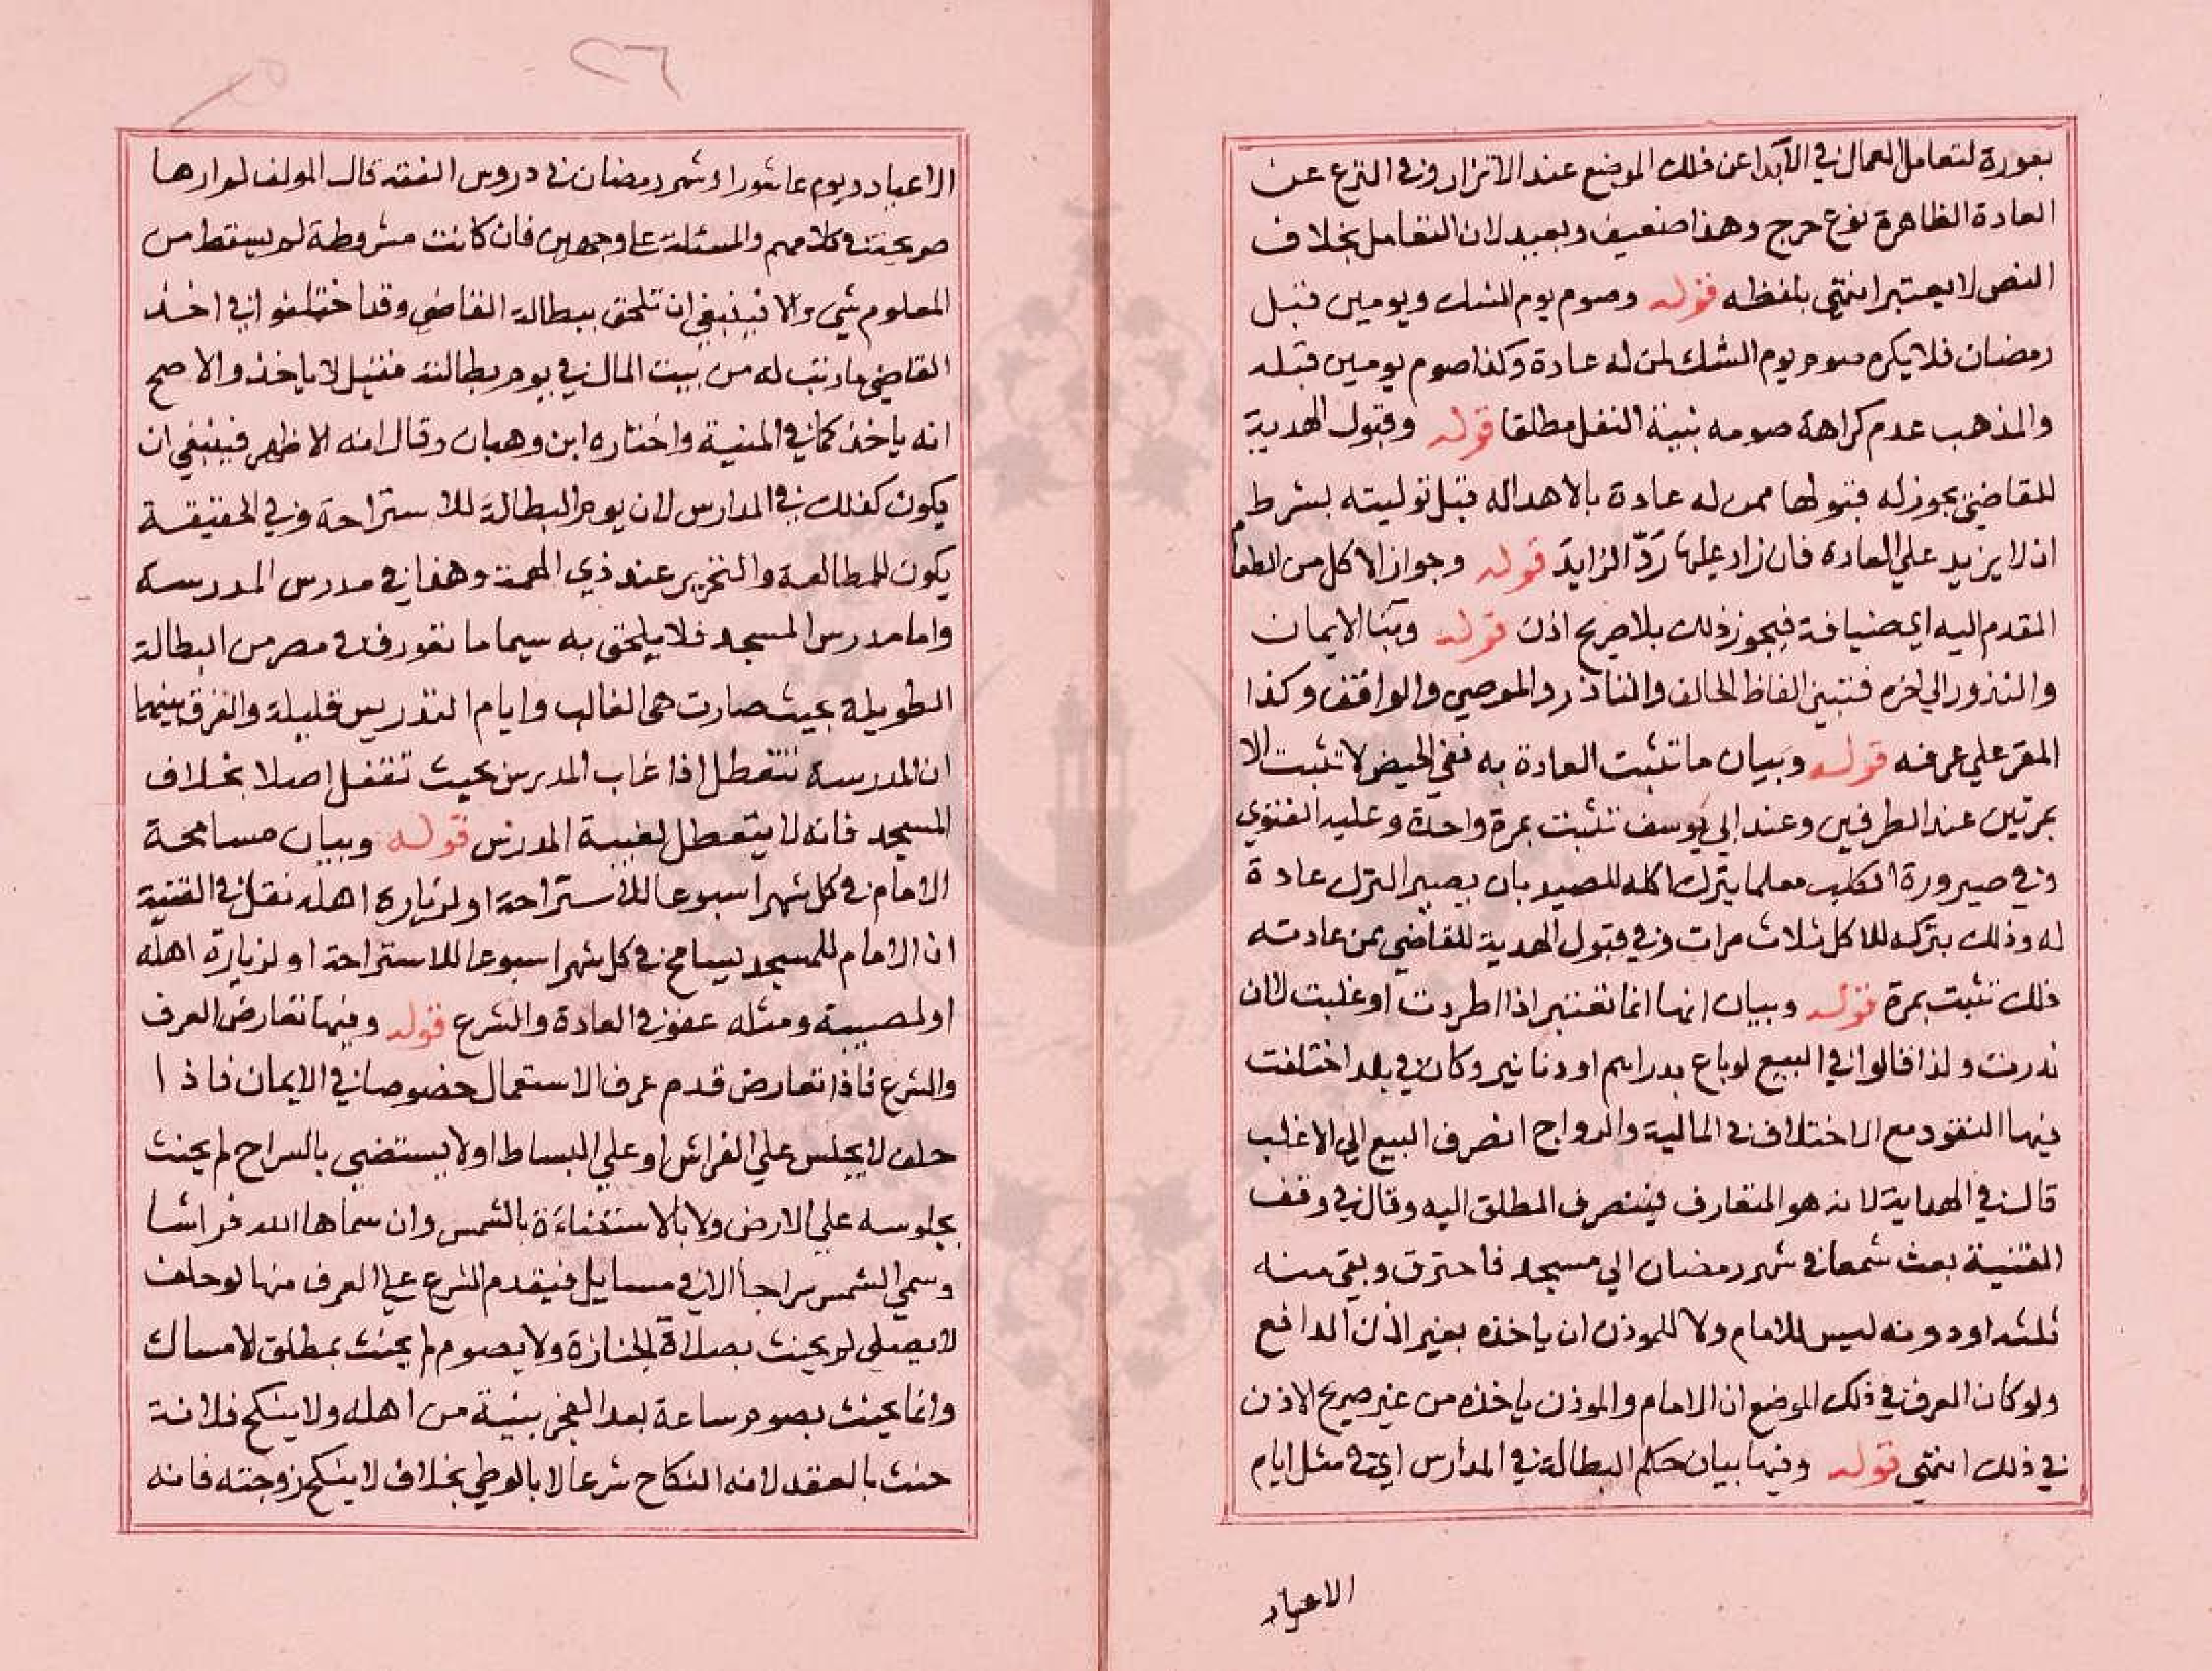 بعورة لتعامل العمال في الابداء عن ذلك الموضع عند الاتزار وفي النزع عن
العادة الظاهرة نوع حرج وهذا ضعيف وبعيد لان التعامل بخلاف
النص لا يعتبر انتهى بلفظه قوله وصوم يوم الشك ويومين قبل
رمضان فلا يكره صوم يوم الشك لمن له عادة وكذا صوم يومين قبله
والمذهب عدم كراهة صومه بنية النفل مطلقا قوله وقبول الهدية
للقاضي يجوز له قبولها ممن له عادة بالاهدا له قبل توليته بشرط
ان لا يزيد علي العادة فان زاد عليها رد الزايد قوله وجواز الاكل من الطعام
المقدم اليه اي ضيافة فيجوز ذلك بلا صريح اذن قوله وبنا الايمان
والنذور الي اخره فتبني الفاظ الحالف والناذر والموصي والواقف وكذا
المقر علي عرفه قوله وبيان ما تثبت العادة به ففي الحيض لا تثبت الا
بمرتين عند الطرفين وعند ابي يوسف تثبت بمرة واحدة وعليه الفتوي
وفي صيرورة الكلب معلما بترك اكله للصيد بان يصير الترك عادة
له وذلك بتركه للاكل ثلاث مرات وفي قبول الهدية للقاضي ممن عادته
ذلك تثبت بمرة قوله وبيان انها انما تعتبر اذا اطردت او غلبت لا ان
ندرت ولذا قالوا في البيع لو باع بدراهم او دنانير وكان في بلد اختلفت
فيها النقود مع الاختلاف في المالية والرواج انصرف البيع الي الاغلب
قال في الهداية لانه هو المتعارف فينصرف المطلق اليه وقال في وقف
القنية بعث شمعا في شهر رمضان الي مسجد فاحترق وبقي منه
ثلثه او دونه ليس للامام ولا للموذن ان ياخذه بغير اذن الدافع
ولو كان العرف في ذلك الموضع ان الامام والموذن ياخذه من غير صريح الاذن
في ذلك انتهى قوله وفيها بيان حكم البطالة في المدارس اي في مثل ايام
الاعياد
٢٦
الاعياد ويوم عاشورا وشهر رمضان في دروس الفقه قال المولف لم ارها
صريحة في كلامهم والمسئلة علي وجهين فان كانت مشروطة لم يسقط من
المعلوم شي والا فينبغي ان تلحق ببطالة القاضي وقد اختلفوا في اخذ
القاضي ما رتب له من بيت المال في يوم بطالته فقيل لا ياخذ والاصح
انه ياخذ كما في المنية واختاره ابن وهبان وقال انه الاظهر فينبغي ان
يكون كذلك في المدارس لان يوم البطالة للاستراحة وفي الحقيقة
يكون للمطالعة والتحرير عند ذي الهمة وهذا في مدرس المدرسة
واما مدرس المسجد فلا يلحق به سيما ما تعورف في مصر من البطالة
الطويلة بحيث صارت هي الغالب وايام التدريس قليلة والفرق بينهما
ان المدرسة تتعطل اذا غاب المدرس بحيث تقفل اصلا بخلاف
المسجد فانه لا يتعطل لغيبة المدرس قوله وبيان مسامحة
الامام في كل شهر اسبوعا للاستراحة او لزيارة اهله نقل في القنية
ان الامام للمسجد يسامح في كل شهر اسبوعا للاستراحة او لزيارة اهله
او لمصيبة ومثله عفو في العادة والشرع قوله وفيها تعارض العرف
والشرع فاذا تعارض قدم عرف الاستعمال خصوصا في الايمان فاذا
حلف لا يجلس علي الفراش او علي البساط او لا يستضي بالسراج لم يحنث
بجلوسه علي الارض ولا بالاستضاءة بالشمس وان سماها الله فراشا
وسمي الشمس سراجا الا في مسايل فيقدم الشرع علي العرف منها لو حلف
لا يصلي لم يحنث بصلاة الجنازة ولا يصوم لم يحنث بمطلق لامساك
وانما يحنث بصوم ساعة بعد الفجر بنية من اهله ولا ينكح فلانة
حنث بالعقد لانه النكاح شرعا لا بالوطي بخلاف لا ينكح زوجته فانه